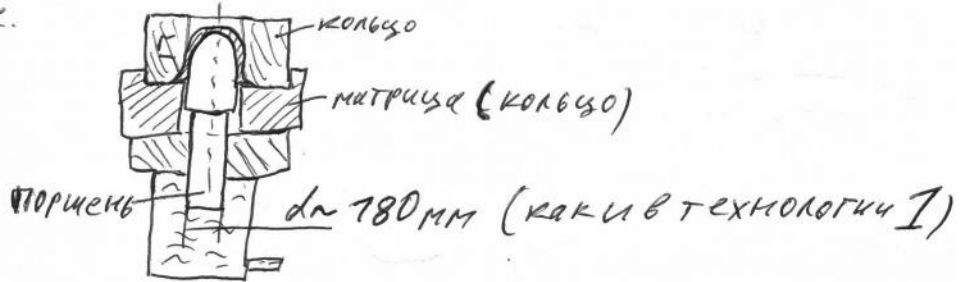 кольцо
матрица (кольцо)
поршень
d~ 180мм (как и в технологии 1)